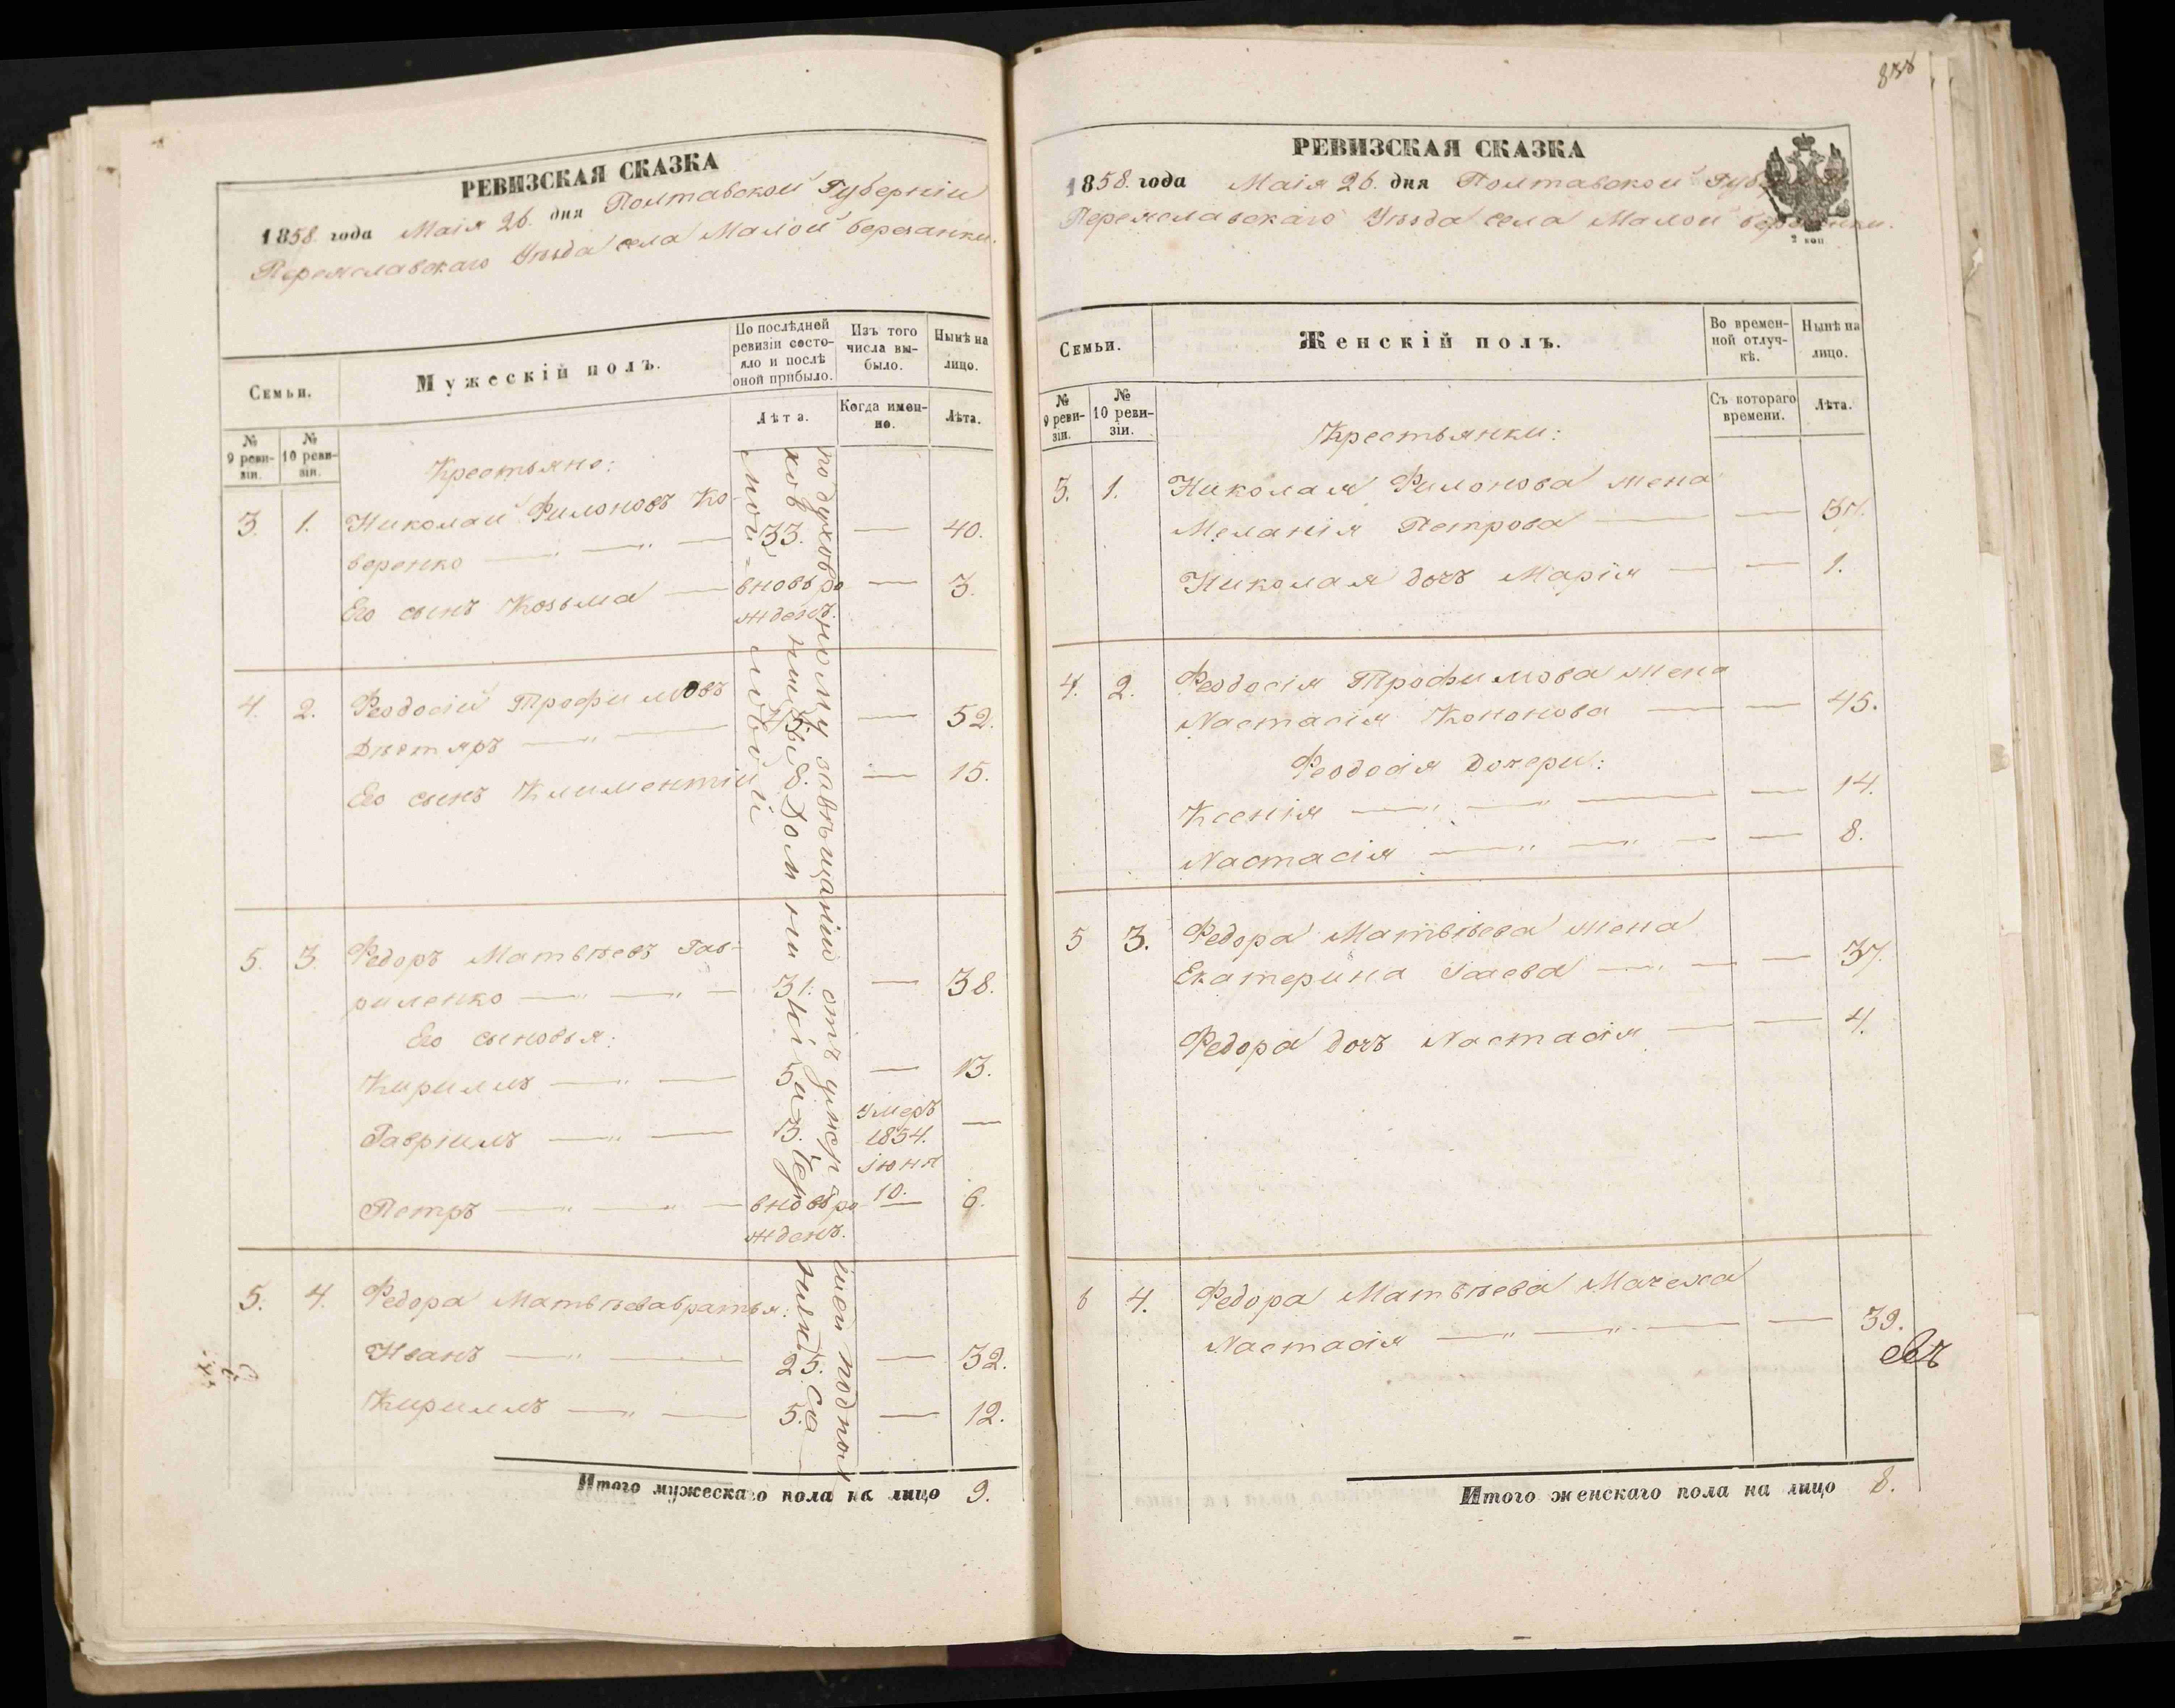 888
РЕВИЗСКАЯ СКАЗКА
1858 года Маія 26. дня Полтавской Губерніи
Переяславскаго Уѣзда села Малой березанки.
Семьи.
Мужескій полъ.
По послѣдней ревизіи состояло и послѣ оной прибыло.
Изъ того числа выбыло.
Нынѣ на лицо.
Лѣта.
Когда именно.
Лѣта.
№ 9 ревизіи.
№ 10 ревизіи.
Крестьяне:
3. 1. Николай Филоновъ Ко-
веренко — „ — 33. — 40.
Его сынъ Козьма — вновь ро — 3.
жденъ.
4. 2. Феодосій Трофимовъ
Дѣгтяръ — „ — 45. — 52.
Его сынъ Климентій 8. — 15.
5. 3. Федоръ Матвѣевъ Гав=
риленко — „ — „ — 31. — 38.
Его сыновья:
Кириллъ — „ — 5 — 13.
Гавріилъ — „ — 3. умеръ 1854. іюня 10. —
Петръ — „ — „ — вновь ро — 6.
жденъ.
5. 4. Федора Матвѣева братья:
Иванъ — „ — 25. — 32.
Кириллъ — „ — 5. — 12.
по духовному завѣщанію отъ умер=шей подпол
ков
Домникіи
Итого мужескаго пола на лицо 9.
РЕВИЗСКАЯ СКАЗКА
1858. года Маія 26. дня Полтавской Губ
Переяславскаго Уѣзда села Малой березанки.
2 коп
Семьи.
Женскій полъ.
Во временной отлучкѣ.
Нынѣ на лицо.
№ 9 ревизіи.
№ 10 ревизіи.
Съ котораго времени.
Лѣта.
Крестьянки:
3. 1. Николая Филонова жена
Меланія Петрова — — 37.
Николая дочъ Марія — — 1.
4. 2. Феодосія Трофимова жена
Настасія Кононова — — 45.
Феодосія дочери:
Ксенія — „ — „ — — 14.
Настасія — „ — „ — — 8.
5 3. Федора Матвѣева жена
Екатерина Исаева — „ — — 37.
Федора дочъ Настасія — — 4.
6 4. Федора Матвѣева Мачеха
Настасія — „ — „ — — 39.
Итого женскаго пола на лицо 8.